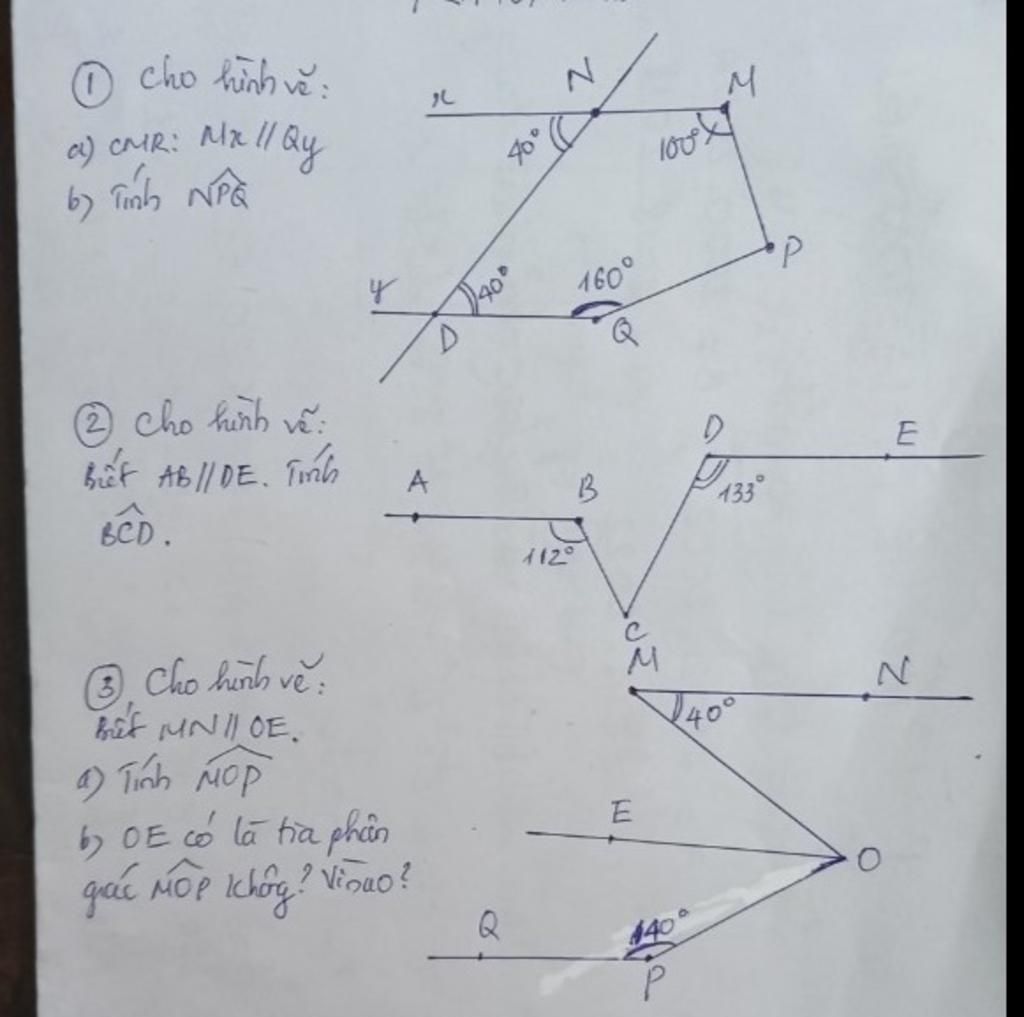 ① Cho hình vẽ:
a) CMR: Mx // Qy
b) Tính NPQ
x
N
M
40°
100°
P
y
40°
160°
D
Q
② Cho hình vẽ:
Biết AB // DE. Tính
BCD.
A
B
D
E
112°
133°
C
③ Cho hình vẽ:
Biết MN // OE.
a) Tính MOP
b) OE có là tia phân
giác MOP không? Vì sao?
M
N
40°
E
O
Q
140°
P